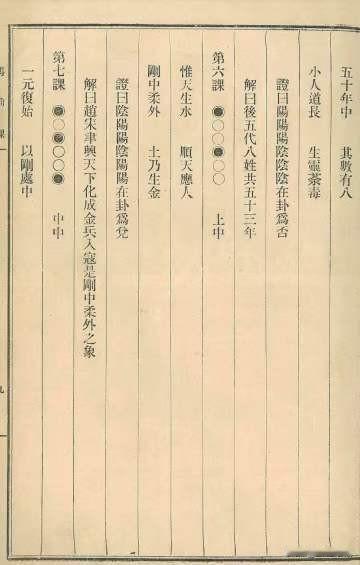 五十年中　其數有八
小人道長　生靈荼毒
證曰陽陽陽陰陰陰在卦爲否
解曰後五代八姓共五十三年
第六課　●○○●○○　上中
惟天生水　順天應人
剛中柔外　土乃生金
證曰陰陽陽陰陽陽在卦爲兌
解曰趙宋肇興天下化成金兵入寇是剛中柔外之象
第七課　●○●○○●　中中
一元復始　以剛處中